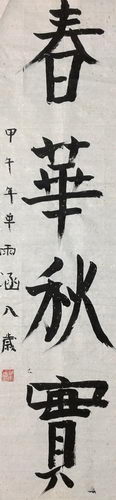 春華秋實
甲午年卓雨涵八歲